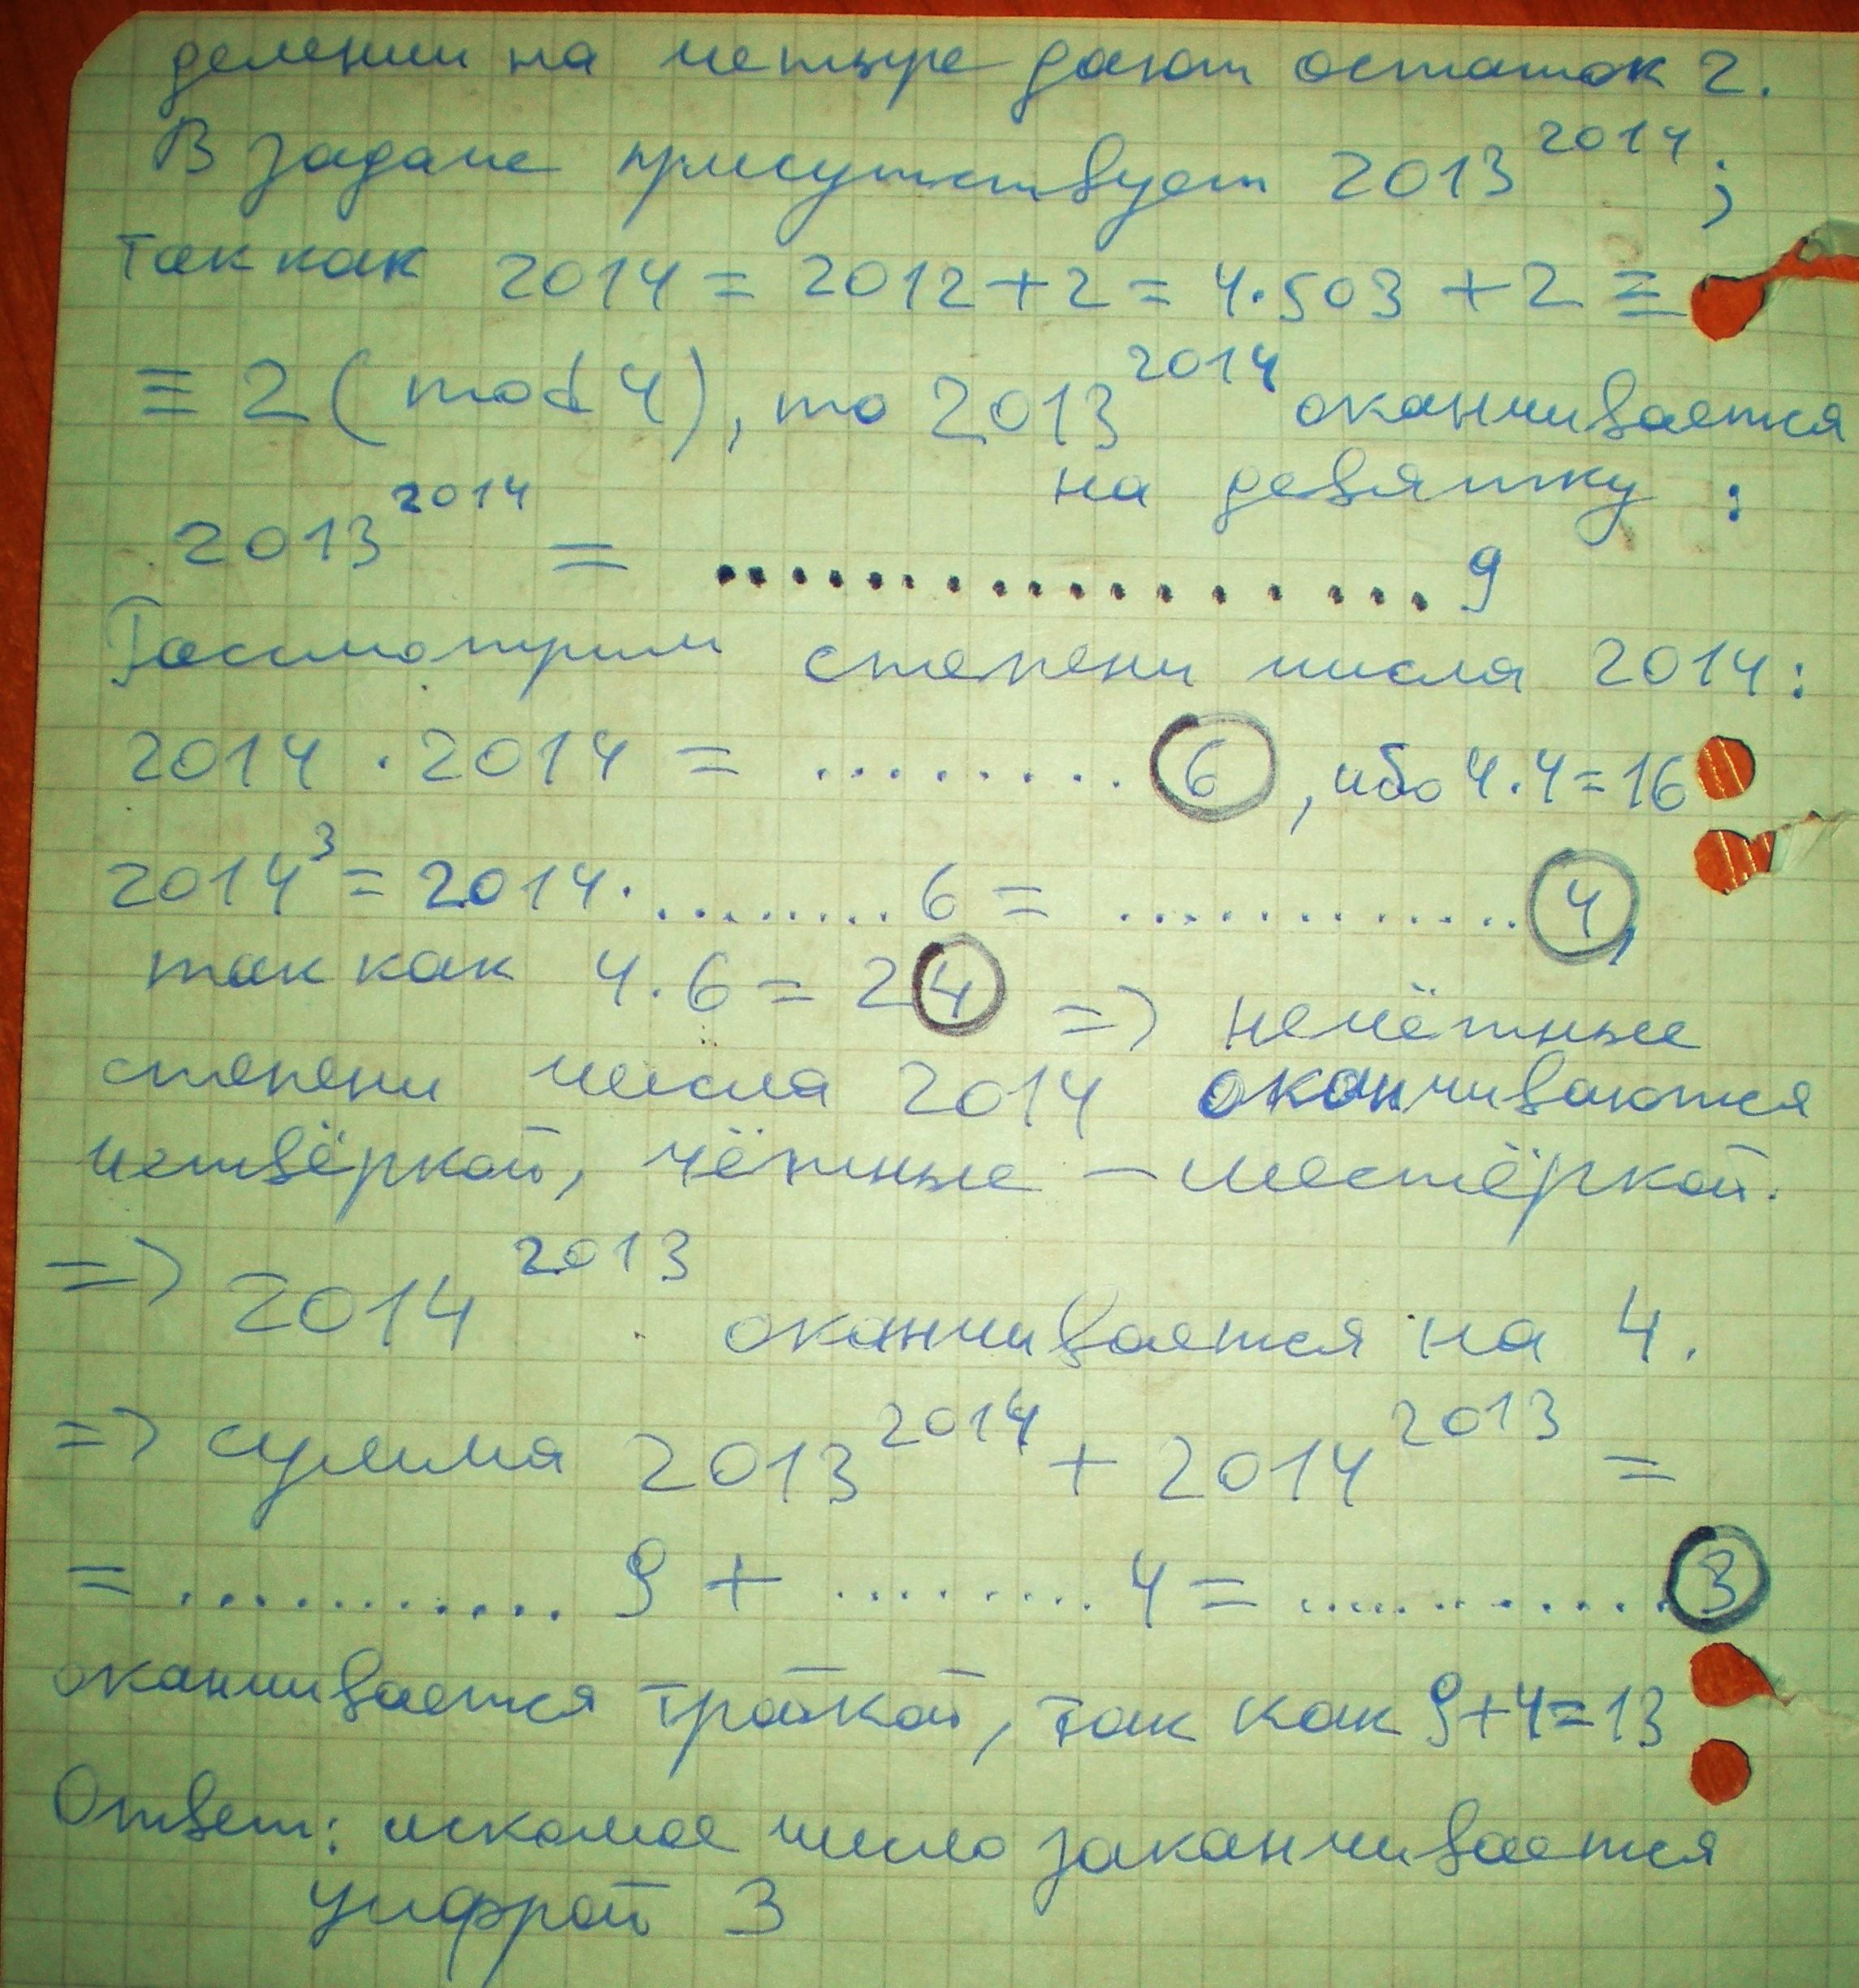 делении на четыре дают остаток 2.
В задаче присутствует 2013^2014;
так как 2014 = 2012 + 2 = 4·503 + 2 ≡
≡ 2 (mod 4), то 2013^2014 оканчивается
на девятку:
2013^2014 = .................. 9
Рассмотрим степени числа 2014:
2014 · 2014 = ........ 6, ибо 4·4=16
2014^3 = 2014· ........ 6 = ............. 4,
так как 4·6 = 24 => нечётные
степени числа 2014 оканчиваются
четвёркой, чётные – шестёркой.
=> 2014^2013 оканчивается на 4.
=> сумма 2013^2014 + 2014^2013 =
= ........... 9 + ........ 4 = ............. 3
оканчивается тройкой, так как 9+4=13
Ответ: искомое число заканчивается
цифрой 3